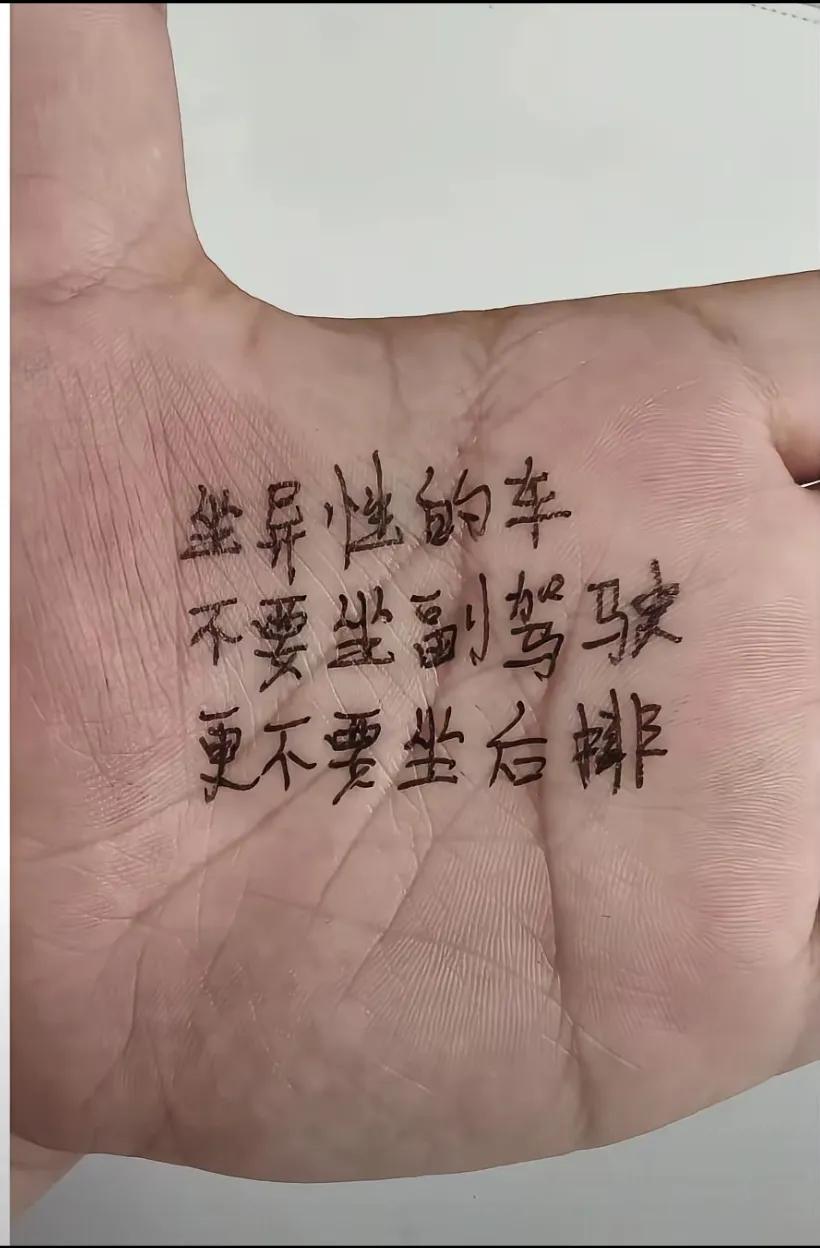 坐异性的车
不要坐副驾驶
更不要坐后排